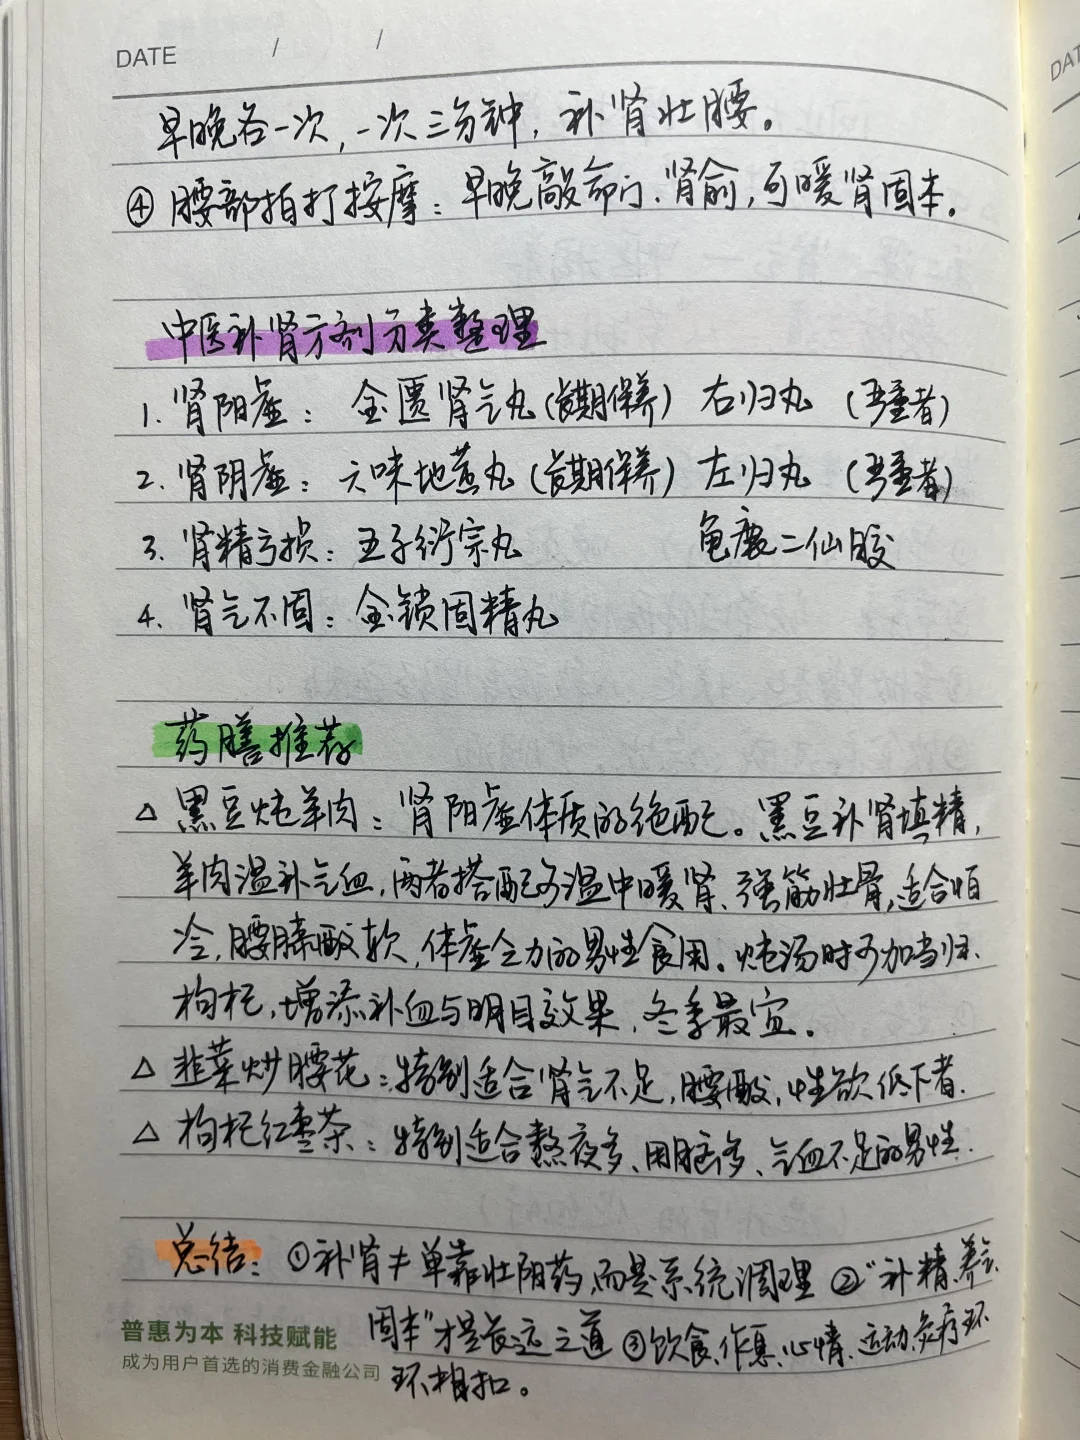 DATE / /
DAT
早晚各一次,一次三分钟,补肾壮腰。
④ 腰部拍打按摩:早晚敲命门、肾俞,可暖肾固本。
中医补肾方剂分类整理
1. 肾阳虚: 金匮肾气丸(前期保养) 右归丸 (严重者)
2. 肾阴虚: 六味地黄丸(前期保养) 左归丸 (严重者)
3. 肾精亏损: 五子衍宗丸 龟鹿二仙胶
4. 肾气不固: 金锁固精丸
药膳推荐
△ 黑豆炖羊肉:肾阳虚体质的绝配。黑豆补肾填精,
羊肉温补气血,两者搭配可温中暖肾、强筋壮骨,适合怕
冷,腰膝酸软,体虚乏力的男性食用。炖汤时可加当归、
枸杞,增添补血与明目效果,冬季最宜。
△ 韭菜炒腰花:特别适合肾气不足,腰酸,性欲低下者.
△ 枸杞红枣茶:特别适合熬夜多、用脑多、气血不足的男性.
总结: ①补肾≠单靠壮阳药,而是系统调理 ②“补精、养气、
固本”才是长远之道 ③饮食、作息、心情、运动、灸疗环
环相扣。
普惠为本 科技赋能
成为用户首选的消费金融公司